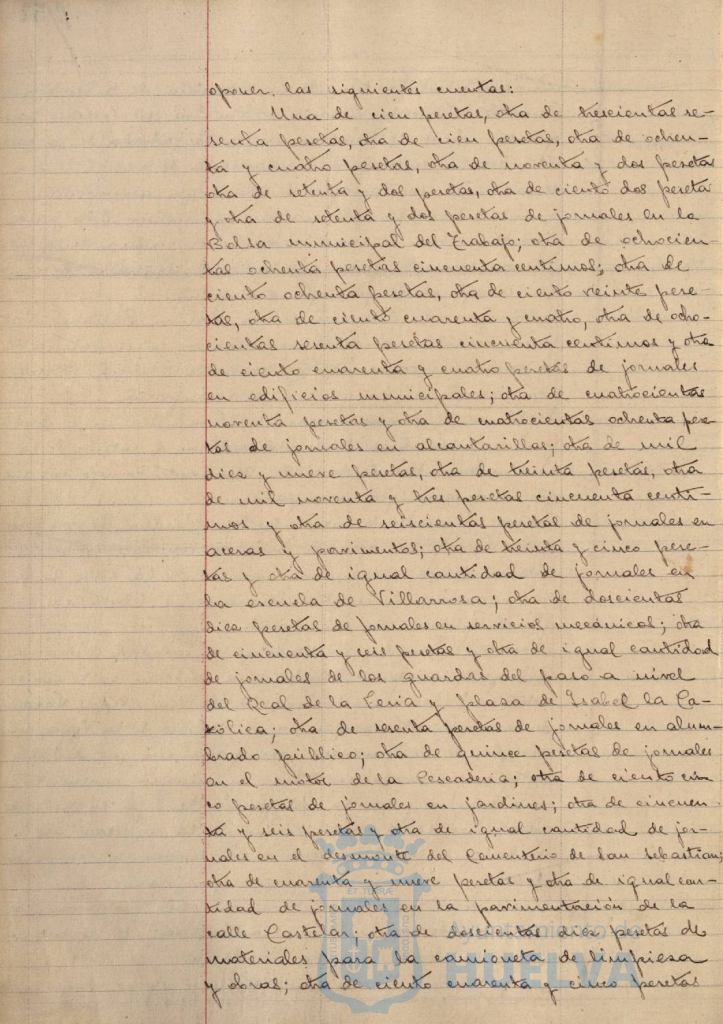 oponer, las siguientes cuentas:
Una de cien pesetas, otra de trescientas se-
senta pesetas, otra de cien pesetas, otra de ochen-
ta y cuatro pesetas, otra de noventa y dos pesetas
otra de setenta y dos pesetas, otra de ciento dos peseta
y otra de setenta y dos pesetas de jornales en la
Bolsa municipal del Trabajo; otra de ochocien-
tas ochenta pesetas cincuenta centimos; otra de
ciento ochenta pesetas, otra de ciento veinte pese-
tas, otra de ciento cuarenta y cuatro, otra de ocho-
cientas sesenta pesetas cincuenta centimos y otra
de ciento cuarenta y cuatro pesetas de jornales
en edificios municipales; otra de cuatrocientas
noventa pesetas y otra de cuatrocientas ochenta pese-
tas de jornales en alcantarillas; otra de mil
diez y nueve pesetas, otra de treinta pesetas, otra
de mil noventa y tres pesetas cincuenta centi-
mos y otra de seiscientas pesetas de jornales en
aceras y pavimentos; otra de treinta y cinco pese-
tas y otra de igual cantidad de jornales en
la escuela de Villarrosa; otra de doscientas
diez pesetas de jornales en servicios mecánicos; otra
de cincuenta y seis pesetas y otra de igual cantidad
de jornales de los guardas del paso a nivel
del Real de la Feria y plaza de Isabel la Ca-
tólica; otra de sesenta pesetas de jornales en alum-
brado público; otra de quince pesetas de jornales
en el motor de la Pescaderia; otra de ciento cin-
co pesetas de jornales en jardines; otra de cincuen-
ta y seis pesetas y otra de igual cantidad de jor-
nales en el desmonte del Cementerio de San Sebastian;
otra de cuarenta y nueve pesetas y otra de igual can-
tidad de jornales en la pavimentación de la
calle Castelar; otra de doscientas diez pesetas de
materiales para la camioneta de limpieza
y obras; otra de ciento cuarenta y cinco pesetas
Ayuntamiento de
HUELVA